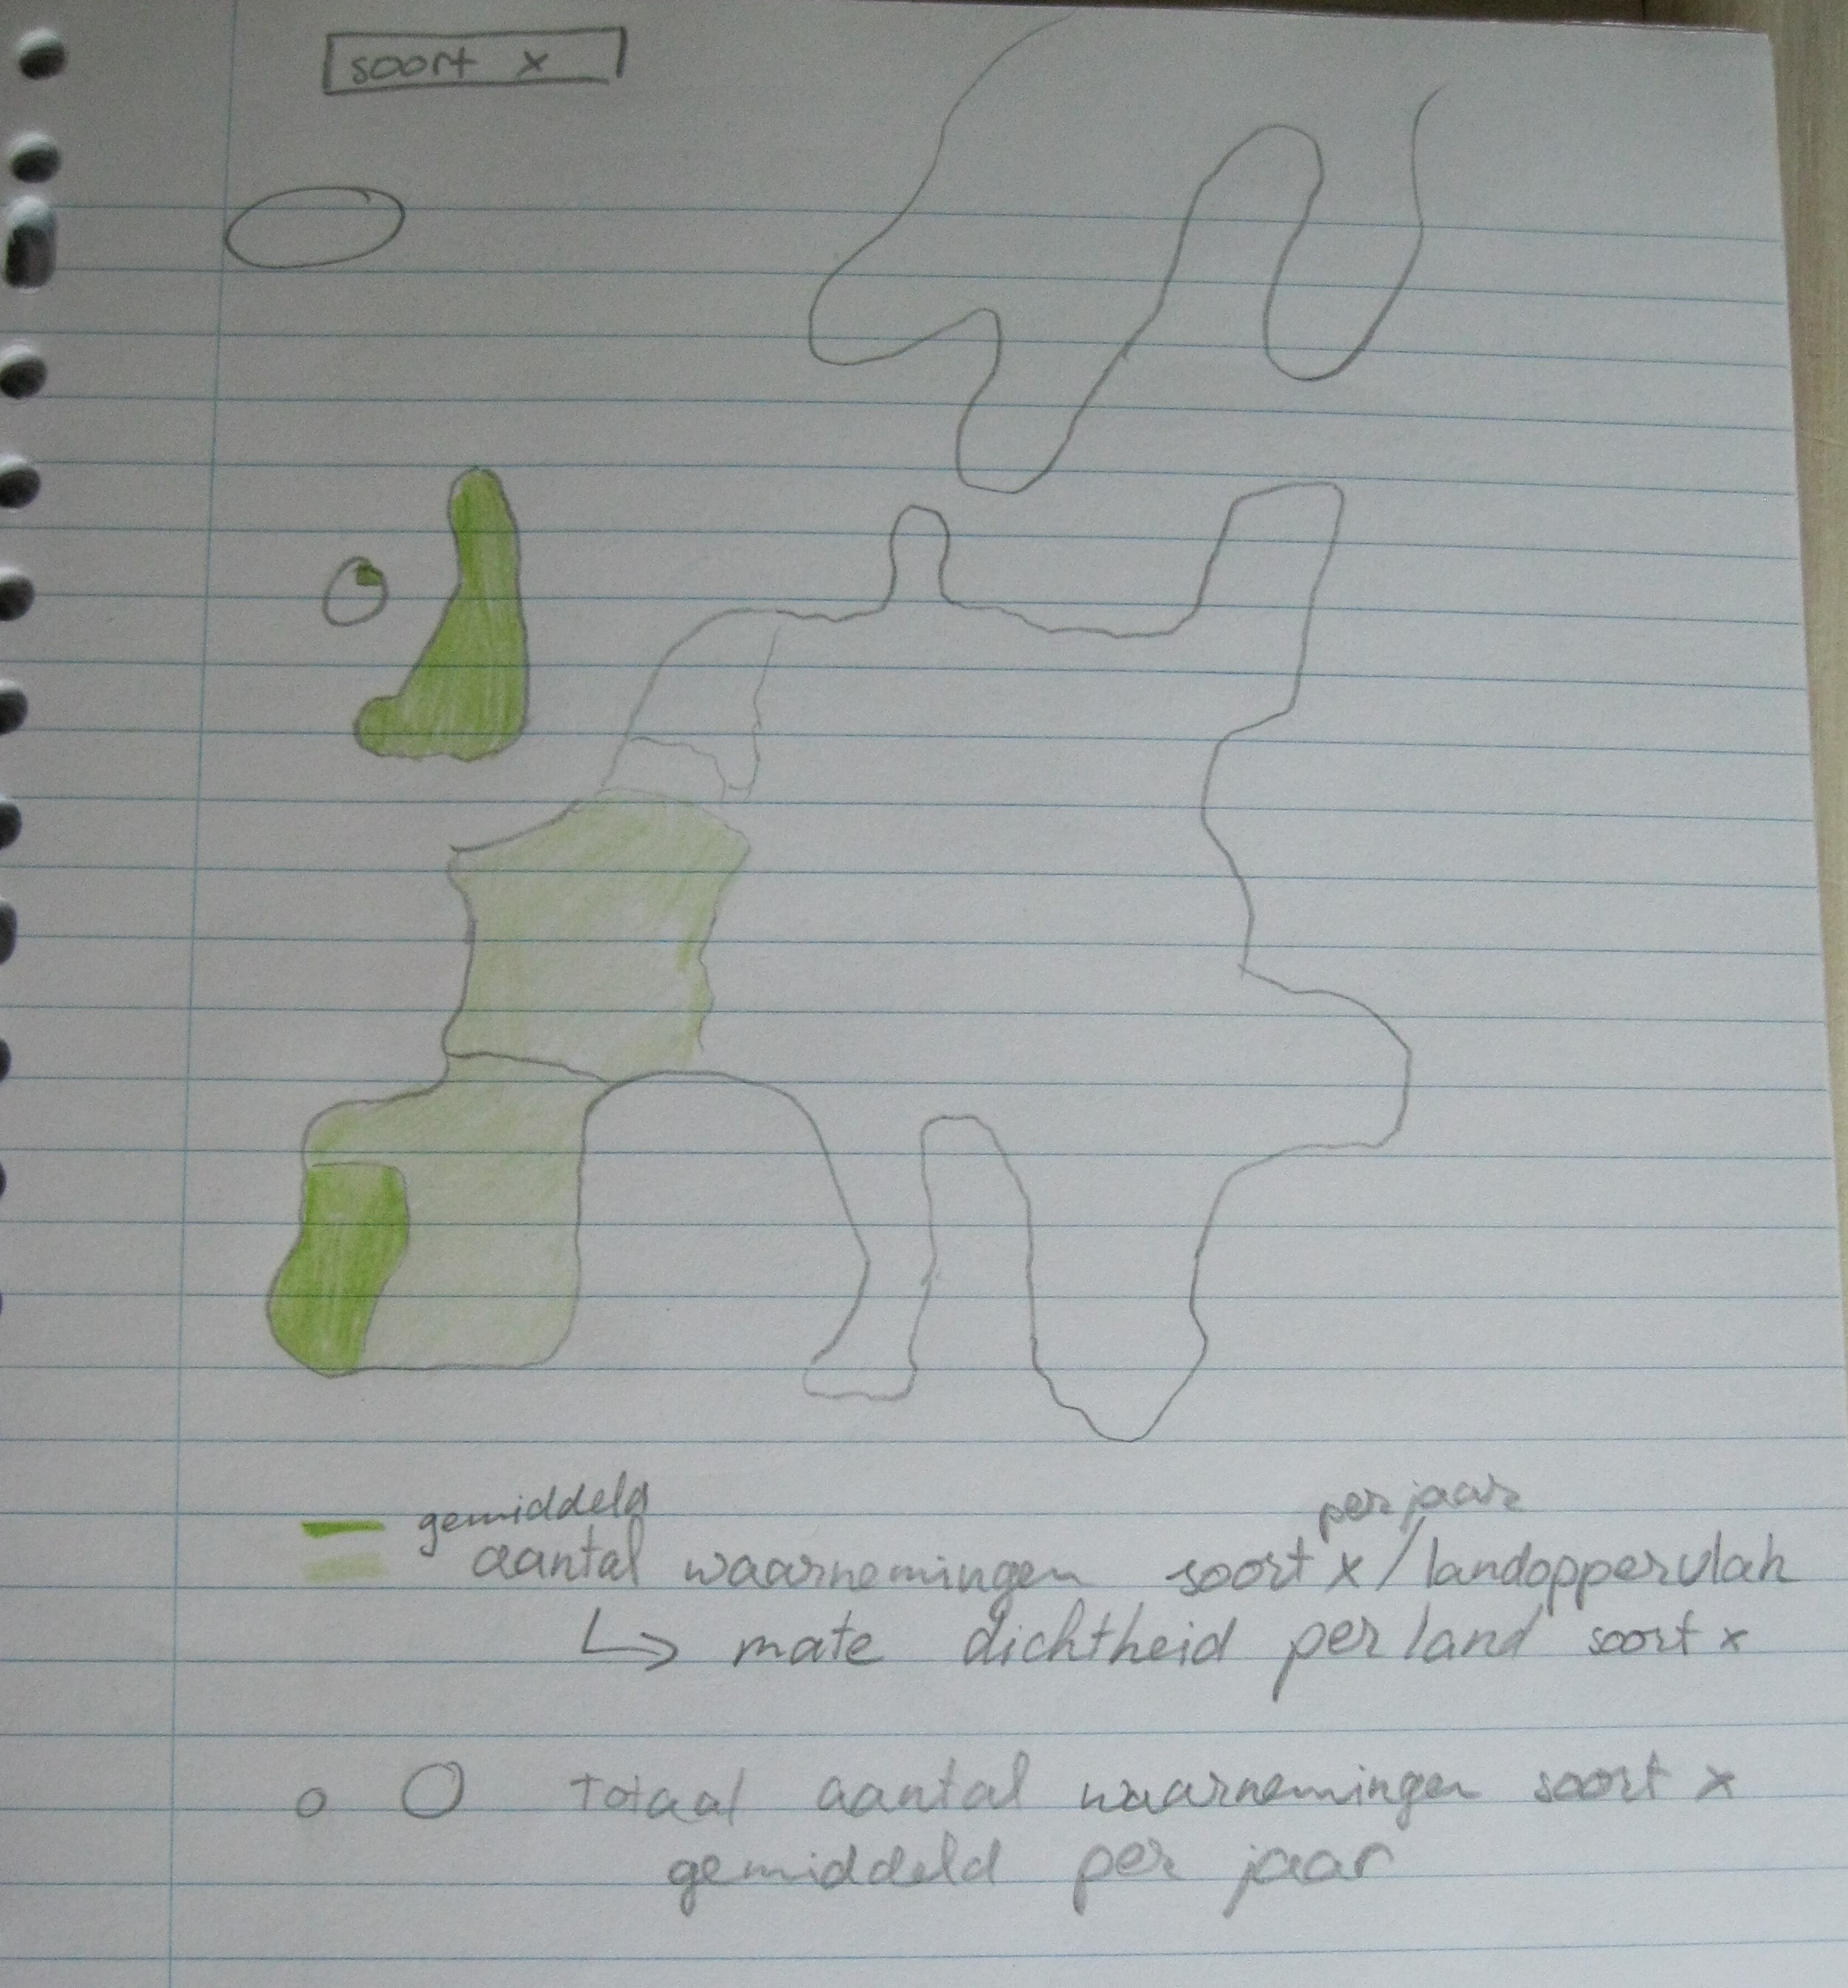 soort x
gemiddeld
per jaar
aantal waarnemingen soort x / landoppervlak
↳ mate dichtheid per land soort x
totaal aantal waarnemingen soort x
gemiddeld per jaar